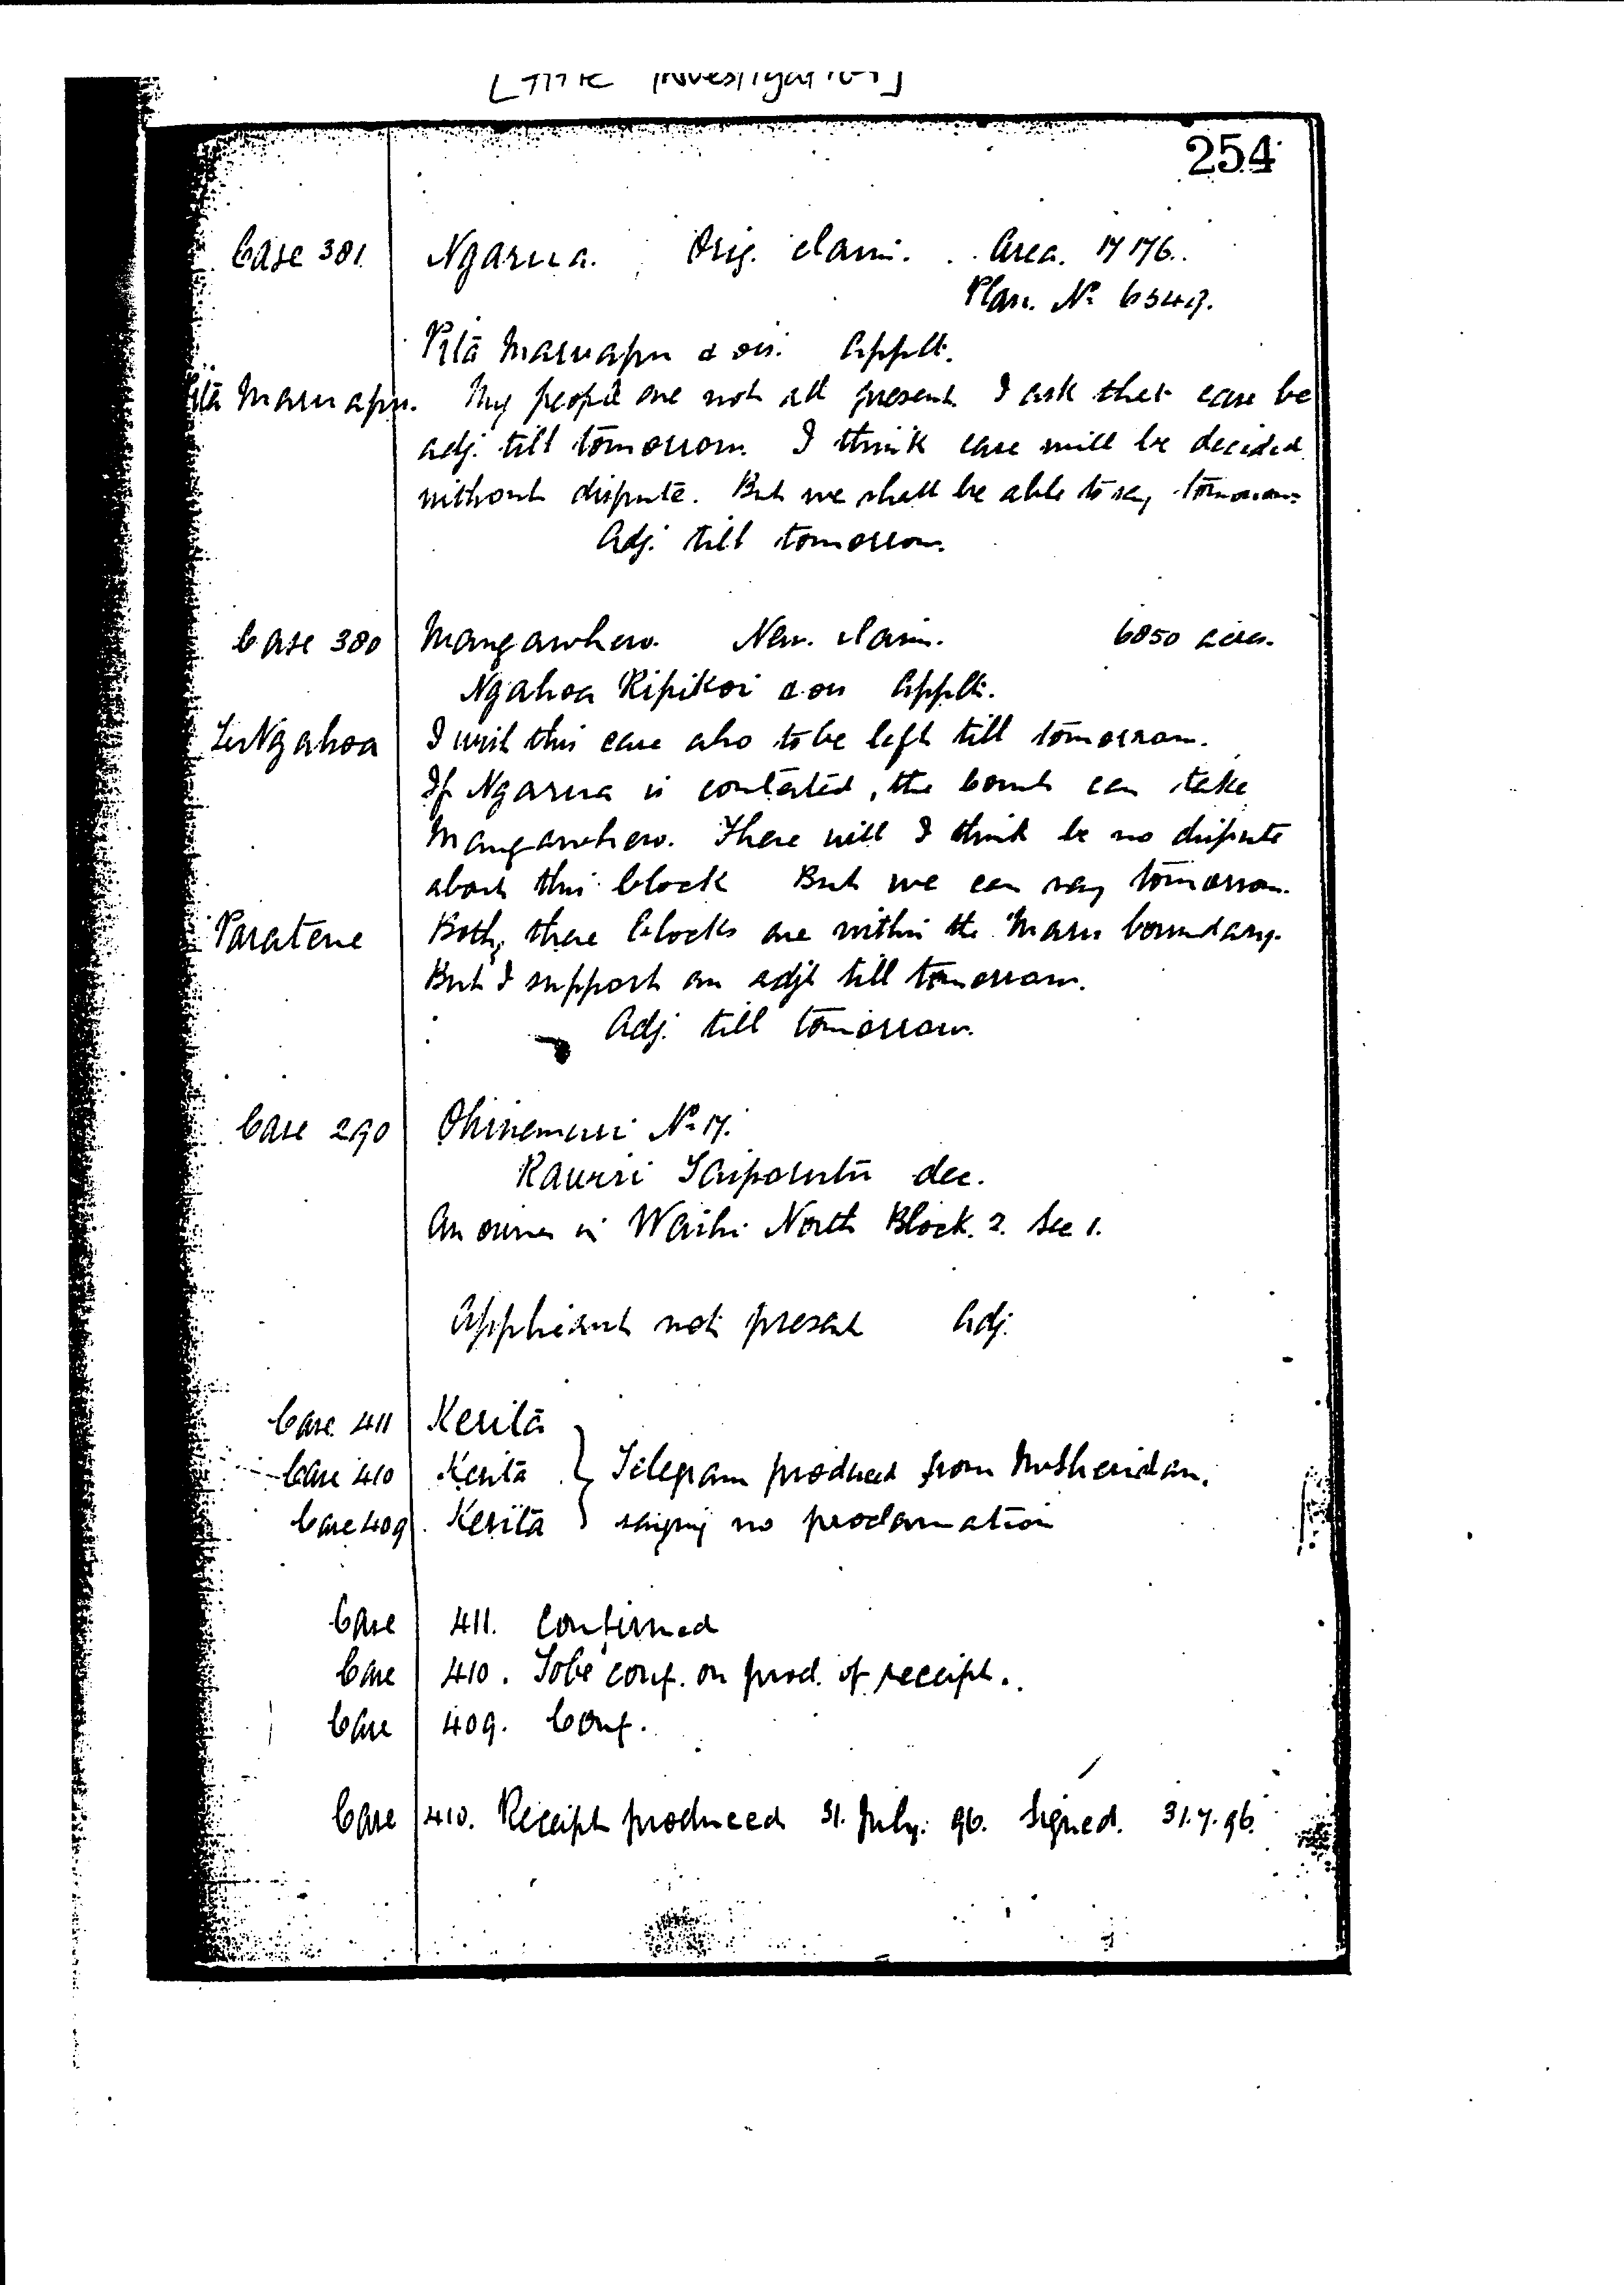 [Title Investigation]
254
Case 381. Ngarua. Orig. claim. Area. 7176.
Plan. No 6349.
Pita Maruapu & ors. Applts.
Pita Maruapu. My people are not all present. I ask that case be
adj. till tomorrow. I think case will be decided
without dispute. But we shall be able to say tomorrow.
Adj. till tomorrow.
Case 380 Mangawhero. New. claim. 6850 acres.
Ngahoa Ripikoi & ors Applts.
Te Ngahoa I wish this case also to be left till tomorrow.
If Ngarua is contested, the Court can take
Mangawhero. There will I think be no dispute
about this block But we can say tomorrow.
Paratene Both these blocks are within the Maru boundary.
But I support an adjt till tomorrow.
Adj. till tomorrow.
Case 290 Ohinemuri No 17.
Rawiri Taiporutu dec.
An owner in Waihi North Block. 2. Sec 1.
Applicant not present Adj.
Case 411 Kerita
Case 410 Kerita } Telegram produced from Mr Sheridan.
Case 409. Kerita saying no proclamation
Case 411. Confirmed
Case 410. To be conf. on prod. of receipt.
Case 409. Conf.
Case 410. Receipt produced 31. July. 96. Signed. 31.7.96.